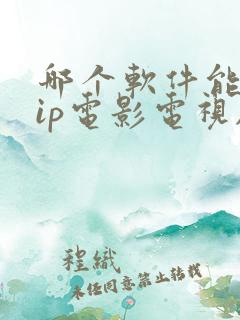 哪个軟件能
ip電影電視
程織
未任同意禁止转载